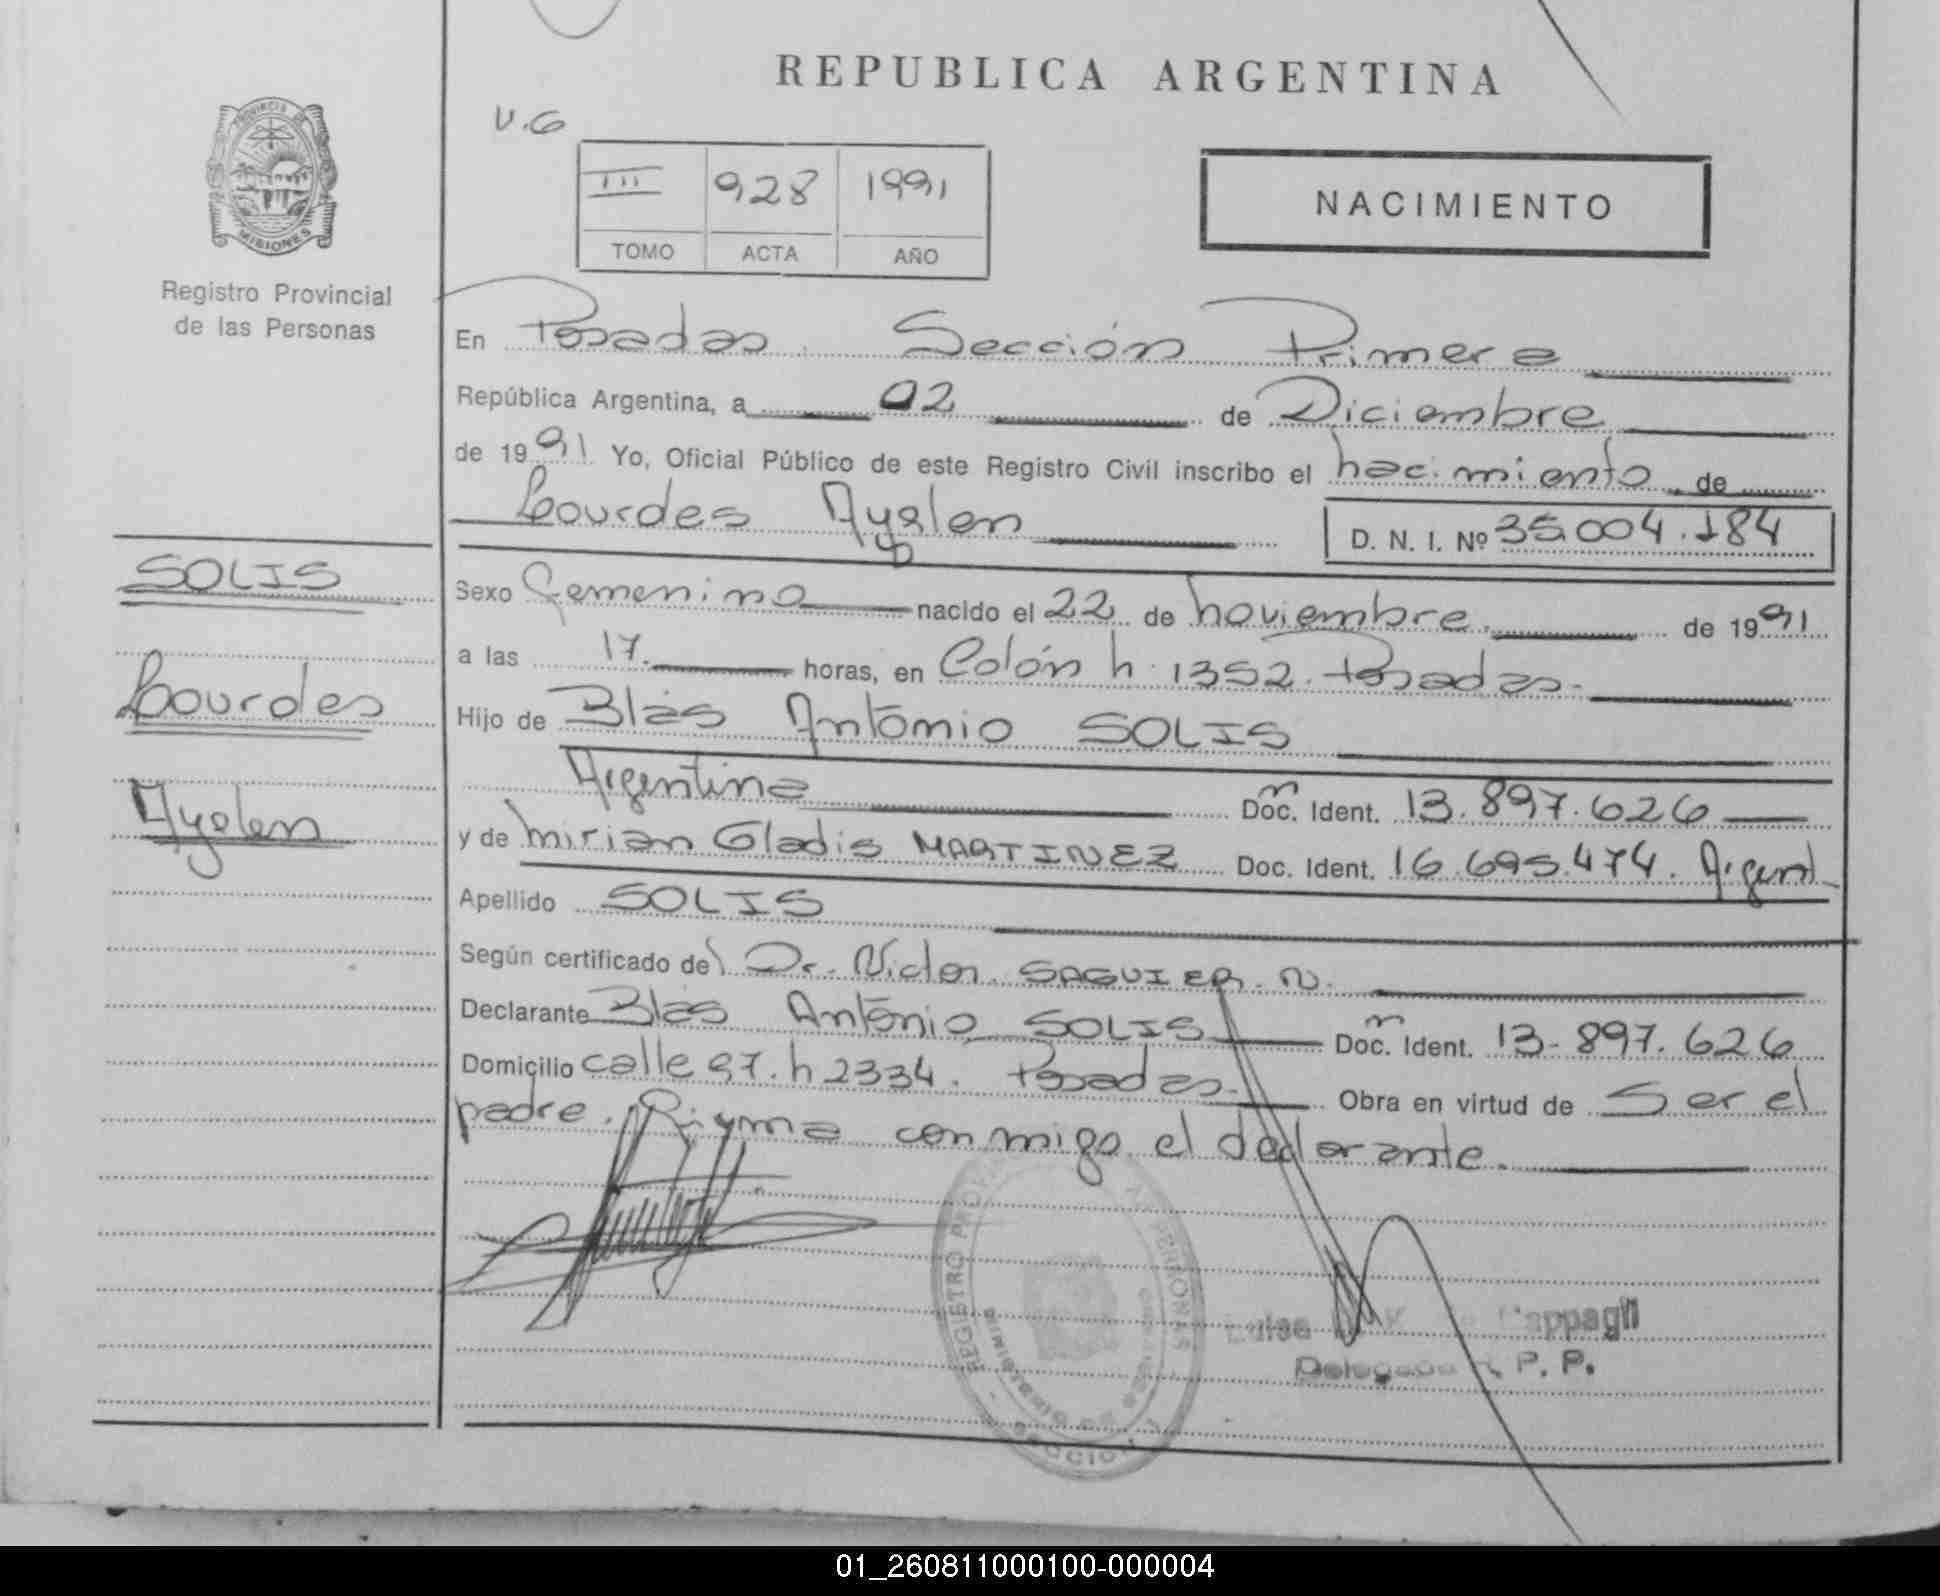 REPUBLICA ARGENTINA
PROVINCIA DE
MISIONES
Registro Provincial
de las Personas
V.G
III 928 1991
TOMO ACTA AÑO
NACIMIENTO
En Posadas. Sección Primera
República Argentina, a 02 de Diciembre
de 1991 Yo, Oficial Público de este Registro Civil inscribo el nacimiento de
Lourdes Ayelen D. N. I. Nº 35.004.184
SOLIS
Lourdes
Ayelen
Sexo Femenino nacido el 22 de noviembre. de 1991
a las 17. horas, en Colón n. 1352. Posadas.
Hijo de Blás Antonio SOLIS
Argentina Doc. Ident. m 13.897.626
y de Mirian Gladis MARTINEZ Doc. Ident. 16.695.474. Argent.
Apellido SOLIS
Según certificado del Dr. Victor SAGUIER. N.
Declarante Blás Antonio SOLIS Doc. Ident. m 13-897.626
Domicilio calle 97. n 2334. Posadas. Obra en virtud de Ser el
padre. Firma conmigo el declarante.
REGISTRO PERSONAS
Luisa Cappagli
Delegada R. P. P.
01_260811000100-000004